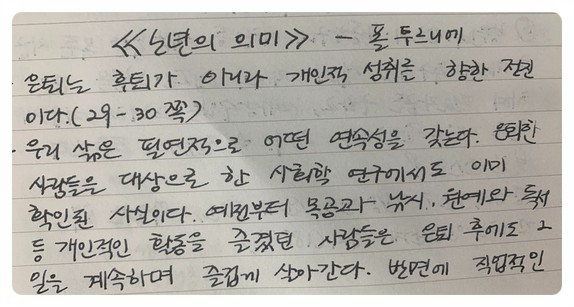 《노년의 의미》 - 폴 투르니에
은퇴는 후퇴가 아니라 개인적 성취를 향한 전진
이다.(29-30쪽)
· 우리 삶은 필연적으로 어떤 연속성을 갖는다. 은퇴한
사람들을 대상으로 한 사회학 연구에서도 이미
확인된 사실이다. 예전부터 목공과 낚시, 원예와 독서
등 개인적인 활동을 즐겼던 사람들은 은퇴 후에도 그
일을 계속하며 즐겁게 살아간다. 반면에 직업적인